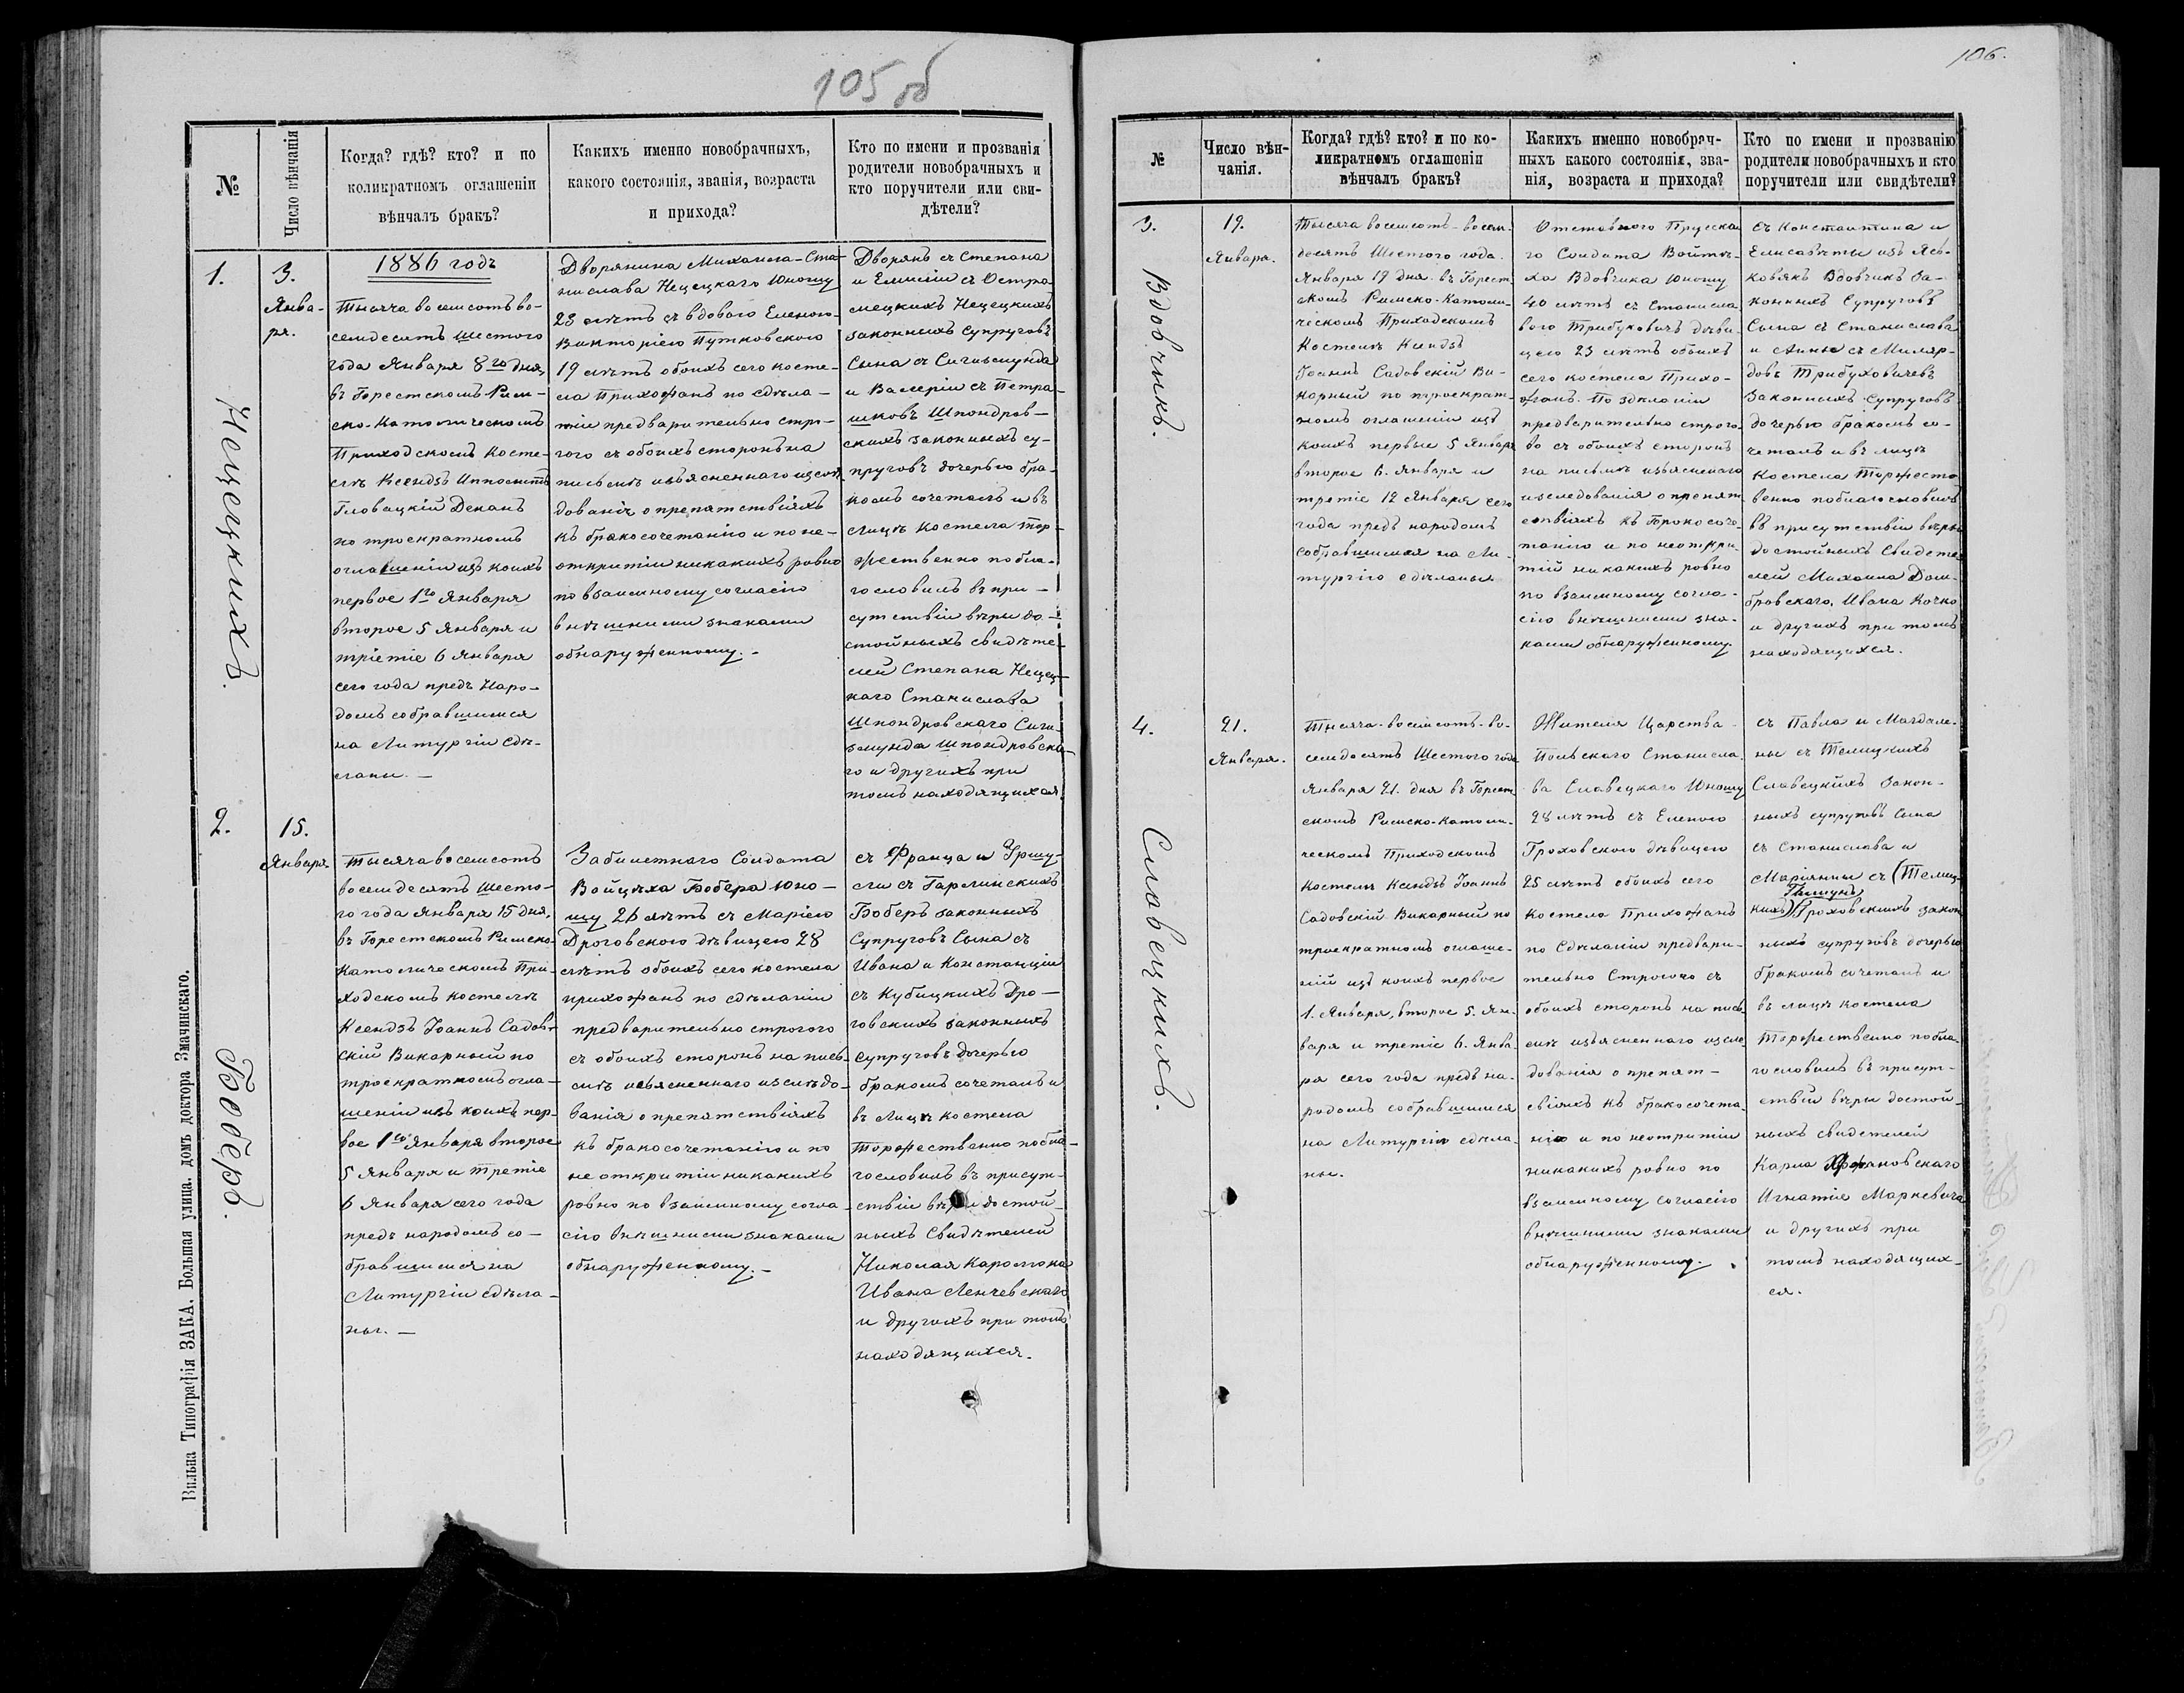 105 об
№
Число вѣнчанія
Когда? гдѣ? кто? и по
коликратномъ оглашеніи
вѣнчалъ бракъ?
Какихъ именно новобрачныхъ,
какого состоянія, званія, возраста
и прихода?
Кто по имени и прозванія
родители новобрачныхъ и
кто поручители или сви-
дѣтели?
1.
Нецецкихъ.
3.
Янва-
ря.
1886 годъ
Тысяча восемсотъ во-
семдесятъ шестого
года Января 8го дня,
въ Горестскомъ Рим-
ско-Католическомъ
Приходскомъ Косте-
лѣ Ксендзъ Ипполитъ
Гловацкій Деканъ
по троекратномъ
оглашеніи изъ коихъ
первое 1го Января
второе 5 Января и
тріетіе 6 Января
сего года предъ Наро-
домъ собравшимся
на Литургіи сдѣ-
ланы. —
Дворянина Михаила-Ста-
нислава Нецецкаго Юношу
23 лѣтъ съ вдового Еленого-
Викторіею Путковского
19 лѣтъ обоихъ сего косте-
ла Прихожанъ по сдѣла-
ніи предварительно стро-
гого съ обоихъ сторонъ на
письмѣ изъясненнаго изслѣ
дованія о препятствіяхъ
къ бракосочетанію и по не-
открытіи никакихъ равно
по взаимному согласію
внѣшними знаками
обнаруженному. -
Дворянъ съ Степана
и Емиліи съ Остра-
мецкихъ Нецецкихъ
законныхъ супруговъ
Сына съ Сигисмунда
и Валеріи съ Петра-
шковъ Шпондров-
скихъ законныхъ су-
пруговъ дочерью бра-
комъ сочеталъ и въ
Лицѣ Костела тор-
жественно побла-
гословилъ въ при-
сутствіи вѣры до-
стойныхъ свидѣте-
лей Степана Нецец-
каго Станислава
Шпондровскаго Сиги-
змунда Шпондровска-
го и другихъ при
томъ находящихся.
2.
Боберъ.
15.
Января
Тысяча восемсотъ
восемдесятъ шесто-
го года Января 15 дня,
въ Горестскомъ Римско-
Католическомъ При-
ходскомъ костелѣ
Ксендзъ Іоаннъ Садов-
скій Викарный по
троекратномъ огла-
шеніи изъ коихъ пер-
вое 1го Января второе
5 Января и третіе
6 Января сего года
предъ народомъ со-
бравшимся на
Литургіи сдѣла-
ны. —
Забилетнаго Солдата
Войцѣха Бобера юно-
шу 26 лѣтъ съ Маріею
Дроговского дѣвицею 28
лѣтъ обоихъ сего костела
прихожанъ по сдѣланіи
предварительно строгого
съ обоихъ сторонъ на пись-
мѣ изъясненнаго изслѣдо-
ванія о препятствіяхъ
къ бракосочетанію и по
не открытіи никакихъ
ровно по взаимному согла-
сію внѣшними знаками
обнаруженному. -
съ Франца и Уршу-
ли съ Гарлинскихъ
Боберъ законныхъ
Супруговъ Сына съ
Ивана и Констанціи
съ Кубицкихъ Дро-
говскихъ законныхъ
супруговъ дочерью
бракомъ сочеталъ и
въ Лицѣ костела
Торжественно побла-
гословилъ въ присут-
ствіи вѣры достой-
ныхъ Свидѣтелей
Николая Каромока
Ивана Ленчевскаго
и другихъ при томъ
находящихся.
Вильна Типографія ЗАКА, Большая улица, домъ доктора Змачинскаго.
106.
№
Число вѣн-
чанія.
Когда? гдѣ? кто? и по ко-
ликратномъ оглашеніи
вѣнчалъ бракъ?
Какихъ именно новобрач-
ныхъ какого состоянія, зва-
нія, возраста и прихода?
Кто по имени и прозванію
родители новобрачныхъ и кто
поручители или свидѣтели?
3.
Вдовчикъ.
19.
Января.
Тысяча восемсотъ-восем-
десятъ Шестого года.
Января 19 дня въ Горест-
скомъ Римско-Католи-
ческомъ Приходскомъ
Костелѣ Ксендзъ
Іоаннъ Садовскій Ви-
карный по троекрат-
номъ оглашеніи изъ
коихъ первые 5 Января
второе 6. Января и
третіе 12 Января сего
года предъ народомъ
собравшимся на Ли-
тургію сдѣланы
Отставного Прусска-
го Солдата Войтѣ-
ха Вдовчика Юношу
40 лѣтъ съ Станисла-
вого Трибуховичъ дѣви-
цею 23 лѣтъ обоихъ
сего костела Прихо-
жанъ. По здѣланіи
предварительно строго-
во съ обоихъ сторонъ
на письмѣ изъясненаго
изследованія о препят-
ствіяхъ къ Бракосоче-
танію и по неоткры-
тій никакихъ ровно
по взаимному согла-
сію внѣшними зна-
ками обнаруженному.
съ Константина и
Елисавѣты изъ Ясь-
ковякъ Вдовчикъ За-
конныхъ Супруговъ
Сына съ Станислава
и Анны съ Миляр-
довъ Трибуховичевъ
Законныхъ Супруговъ
дочерью бракомъ со-
четалъ и въ лицѣ
Костела Торжеств
венно поблагословилъ
въ присутствіи вѣры
достойныхъ Свидете-
лей Михаила Дом-
бровскаго, Ивана Кочко
и другихъ при томъ
находящихся.
4.
Словецкихъ.
21.
Января.
Тысяча-восемсотъ-во-
семдесятъ Шестого года
Января 21. дня въ Горест-
скомъ Римско-Католи-
ческомъ Приходскомъ
Костелѣ Ксендзъ Іоаннъ
Садовскій Викарный по
троекратномъ оглаше-
ній изъ коихъ первое
1. Января, второе 5. Ян-
варя и третіе 6. Янва-
ря сего года предъ на-
родомъ собравшимся
на Литургію сдѣла-
ны.
Жителя Царства
Польскаго Станисла-
ва Славецкаго Юношу
28 лѣтъ съ Еленою
Гроховского дѣвицею
25 лѣтъ обоихъ сего
костела Прихожанъ
по Сдѣланіи предвари-
тельно Строгого съ
обоихъ сторонъ на пись-
мѣ изъясненнаго изсле-
дованія о препят-
свіяхъ къ бракосочета-
нію и по неотритіи
никакихъ ровно по
взаимному согласію
внѣшними знаками
обнаруженному.
съ Павла и Магдале-
ны съ Телицкихъ
Славецкихъ Закон-
ныхъ супруговъ Сына
съ Станислава и
Маріянны съ (Телиц-
кихъ) Гроховскихъ закон
ныхъ супруговъ дочерью
бракомъ сочеталъ и
въ лицѣ костела
Торжественно побла-
гословилъ въ присут-
ствіи вѣры достой-
ныхъ свидетелей
Карла
Игнатія Маркевича
и другихъ при
томъ находящих-
ся.